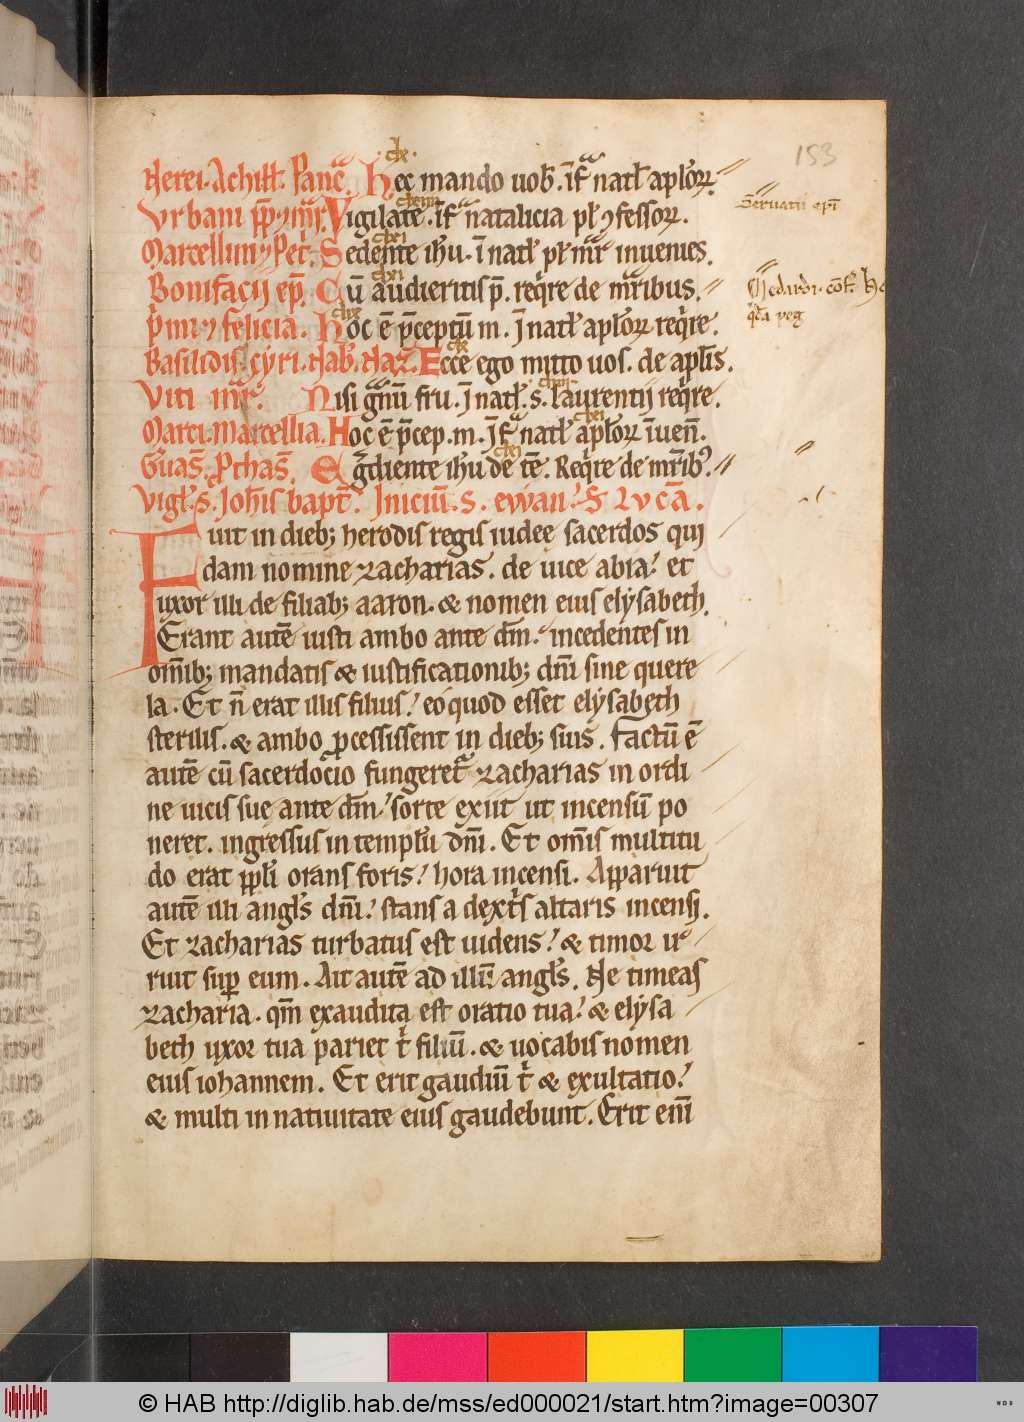 153
Nerei. Achill. Panc̄. Hec mando uob̄. īf natł aplōꝝ.
Seruatii ep̄i
Vrbani Vigilate. īf natalicia pł ꝯfessoꝝ.
Marcellini ⁊ Pet̄. Sedente ih̄u. ī natł pł mr̄ inuenies.
Bonifacij ep̄. Cū audieritis p̄. req̄re de mr̄ibus.
Medardi.
P̄mi ⁊ felicia. Hoc ē p̄ceptū m. ī natł aplōꝝ req̄re.
Basilidis. cyri. Nab̄. Naz̄. Ecce ego mitto uos. de aplīs.
Viti mr̄. Nisi gnū fru. ī natł. s. laurentij req̄re.
Marci. Marcellia. Hoc ē p̄cep. m. īf natł aplōꝝ īuen̄.
G̾uas̄. Prthas̄. Egdiente ih̄u de tē. Req̄re de mr̄ibꝰ.
Vigł. s. Joh̄is bapt̄. Iniciū. s. ewan. s̄ Lvcā.
Fuit in dieb; herodis regis iudee sacerdos qui
dam nomine zacharias. de uice abia? et
uxor illi de filiab; aaron. & nomen eius elysabeth.
Erant autē iusti ambo ante dm̄. incedentes in
omīb; mandatis & iustificationib; dn̄i sine quere
la. Et n̄ erat illis filius? eo quod esset elysabeth
sterilis. & ambo ꝓcessissent in dieb; suis. factū ē
autē cū sacerdocio fungeret᷑ zacharias in ordi
ne uicis sue ante dm̄? sorte exiit ut incensū po
neret. ingressus in templū dn̄i. Et om̄is multitu
do erat ppłi orans foris? hora incensi. Apparuit
autē illi angłs dn̄i? stans a dext̾s altaris incensi.
Et zacharias turbatus est uidens? & timor ir
ruit suꝑ eum. Ait autē ad illū angłs. Ne timeas
zacharia. qm̄ exaudita est oratio tua? & elysa
beth uxor tua pariet t̾ filiū. & uocabis nomen
eius iohannem. Et erit gaudiū t̾ & exultatio?
& multi in natiuitate eius gaudebunt. Erit enī
© HAB http://diglib.hab.de/mss/ed000021/start.htm?image=00307